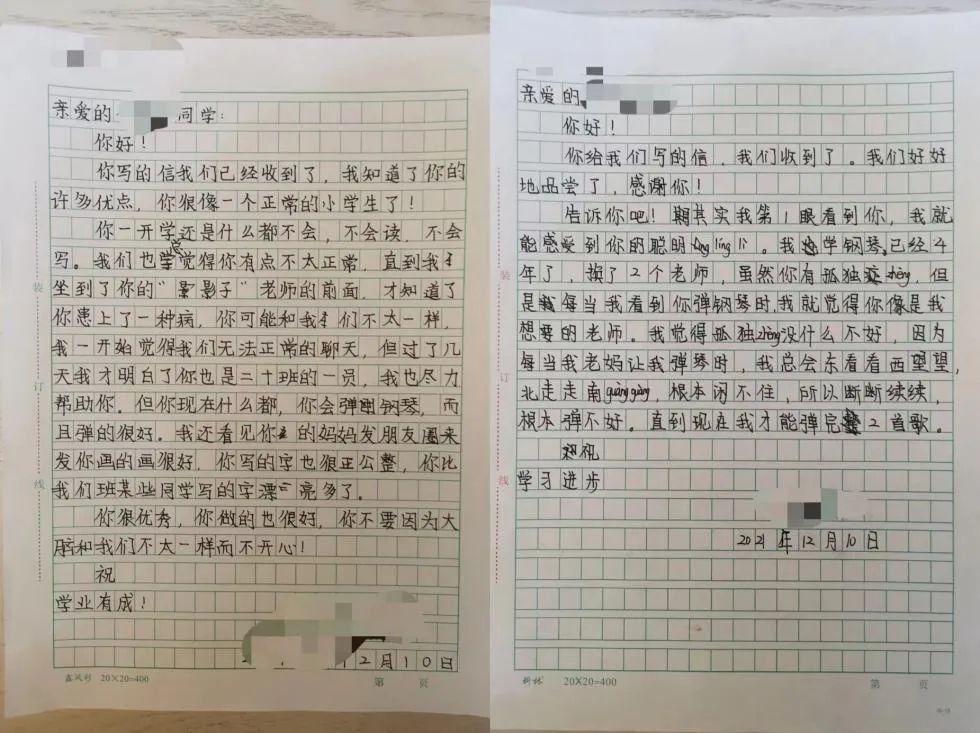 亲爱的
同学：
你好！
你写的信我们已经收到了，我知道了你的
许多优点，你很像一个正常的小学生了！
你一开学还是什么都不会，不会读，不会
写。我们也觉得你有点不太正常，直到我
坐到了你的“影子”老师的前面，才知道了
你患上了一种病，你可能和我们不太一样，
我一开始觉得我们无法正常的聊天，但过了几
天我才明白了你也是二十班的一员，我也尽力
帮助你。但你现在什么都，你会弹钢琴，而
且弹的很好。我还看见你的妈妈发朋友圈来
发你画的画很好，你写的字也很正公整，你比
我们班某些同学写的字漂亮多了。
你很优秀，你做的也很好，你不要因为大
脑和我们不太一样而不开心！
祝
学业有成！
12月10日
鑫风彩 20×20=400 第 页
装
订
线
亲爱的
你好！
你给我们写的信，我们收到了。我们好好
地品尝了，感谢你！
告诉你吧！其实我第1眼看到你，我就
能感受到你的聪明líng lì。我学钢琴已经4
年了，换了2个老师，虽然你有孤独zhèng，但
是每当我看到你弹钢琴时，我就觉得你像是我
想要的老师。我觉得孤独zhèng没什么不好，因为
每当我老妈让我弹琴时，我总会东看看西望望，
北走走南guàng guàng，根本闲不住，所以断断续续，
根本弹不好。直到现在我才能弹完2首歌。
祝
学习进步
2021年12月10日
20×20=400 第 页
装
订
线